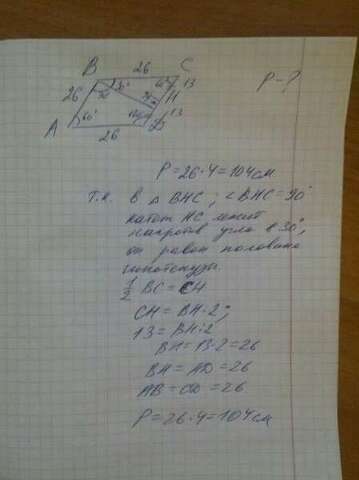 B 26 C
30° 60° 13
26 H P-?
13
A 60° D
26
P=26·4=104см
т.к. в △ BHC; ∠BHC=90°
катет HC лежит
напротив угла в 30°,
он равен половине
гипотенузы.
1/2 BC = CH
CH = BH·2;
13 = BH·2
BH=13·2=26
BH=AD=26
AB=CD=26
P=26·4=104см